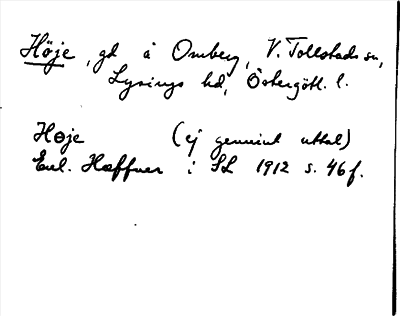 Höje, gd å Omberg, V. Tollstads sn,
Lysings hd, Östergötl. l.
Høje (ej genuint uttal)
Enl. Hæffner i SL 1912 s. 46f.